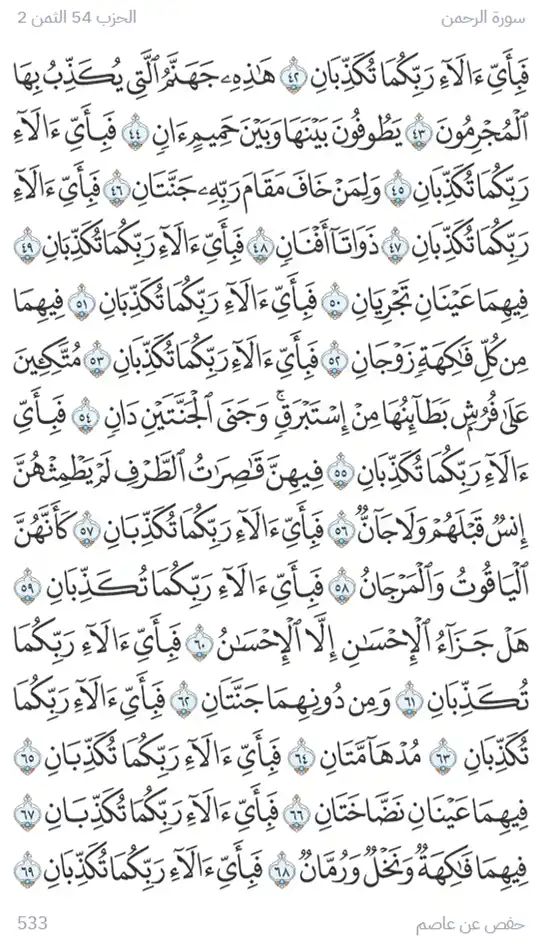 سورة الرحمن
الحزب 54 الثمن 2
فَبِأَيِّ ءَالَآءِ رَبِّكُمَا تُكَذِّبَانِ ٤٢ هَٰذِهِۦ جَهَنَّمُ ٱلَّتِي يُكَذِّبُ بِهَا
ٱلْمُجْرِمُونَ ٤٣ يَطُوفُونَ بَيْنَهَا وَبَيْنَ حَمِيمٍ ءَانٍ ٤٤ فَبِأَيِّ ءَالَآءِ
رَبِّكُمَا تُكَذِّبَانِ ٤٥ وَلِمَنْ خَافَ مَقَامَ رَبِّهِۦ جَنَّتَانِ ٤٦ فَبِأَيِّ ءَالَآءِ
رَبِّكُمَا تُكَذِّبَانِ ٤٧ ذَوَاتَآ أَفْنَانٍ ٤٨ فَبِأَيِّ ءَالَآءِ رَبِّكُمَا تُكَذِّبَانِ ٤٩
فِيهِمَا عَيْنَانِ تَجْرِيَانِ ٥٠ فَبِأَيِّ ءَالَآءِ رَبِّكُمَا تُكَذِّبَانِ ٥١ فِيهِمَا
مِن كُلِّ فَٰكِهَةٍ زَوْجَانِ ٥٢ فَبِأَيِّ ءَالَآءِ رَبِّكُمَا تُكَذِّبَانِ ٥٣ مُتَّكِـِٔينَ
عَلَىٰ فُرُشٍۭ بَطَآئِنُهَا مِنْ إِسْتَبْرَقٍۚ وَجَنَى ٱلْجَنَّتَيْنِ دَانٍ ٥٤ فَبِأَيِّ
ءَالَآءِ رَبِّكُمَا تُكَذِّبَانِ ٥٥ فِيهِنَّ قَٰصِرَٰتُ ٱلطَّرْفِ لَمْ يَطْمِثْهُنَّ
إِنسٌ قَبْلَهُمْ وَلَا جَآنٌّ ٥٦ فَبِأَيِّ ءَالَآءِ رَبِّكُمَا تُكَذِّبَانِ ٥٧ كَأَنَّهُنَّ
ٱلْيَاقُوتُ وَٱلْمَرْجَانُ ٥٨ فَبِأَيِّ ءَالَآءِ رَبِّكُمَا تُكَذِّبَانِ ٥٩
هَلْ جَزَآءُ ٱلْإِحْسَٰنِ إِلَّا ٱلْإِحْسَٰنُ ٦٠ فَبِأَيِّ ءَالَآءِ رَبِّكُمَا
تُكَذِّبَانِ ٦١ وَمِن دُونِهِمَا جَنَّتَانِ ٦٢ فَبِأَيِّ ءَالَآءِ رَبِّكُمَا
تُكَذِّبَانِ ٦٣ مُدْهَآمَّتَانِ ٦٤ فَبِأَيِّ ءَالَآءِ رَبِّكُمَا تُكَذِّبَانِ ٦٥
فِيهِمَا عَيْنَانِ نَضَّاخَتَانِ ٦٦ فَبِأَيِّ ءَالَآءِ رَبِّكُمَا تُكَذِّبَانِ ٦٧
فِيهِمَا فَٰكِهَةٌ وَنَخْلٌ وَرُمَّانٌ ٦٨ فَبِأَيِّ ءَالَآءِ رَبِّكُمَا تُكَذِّبَانِ ٦٩
حفص عن عاصم
533